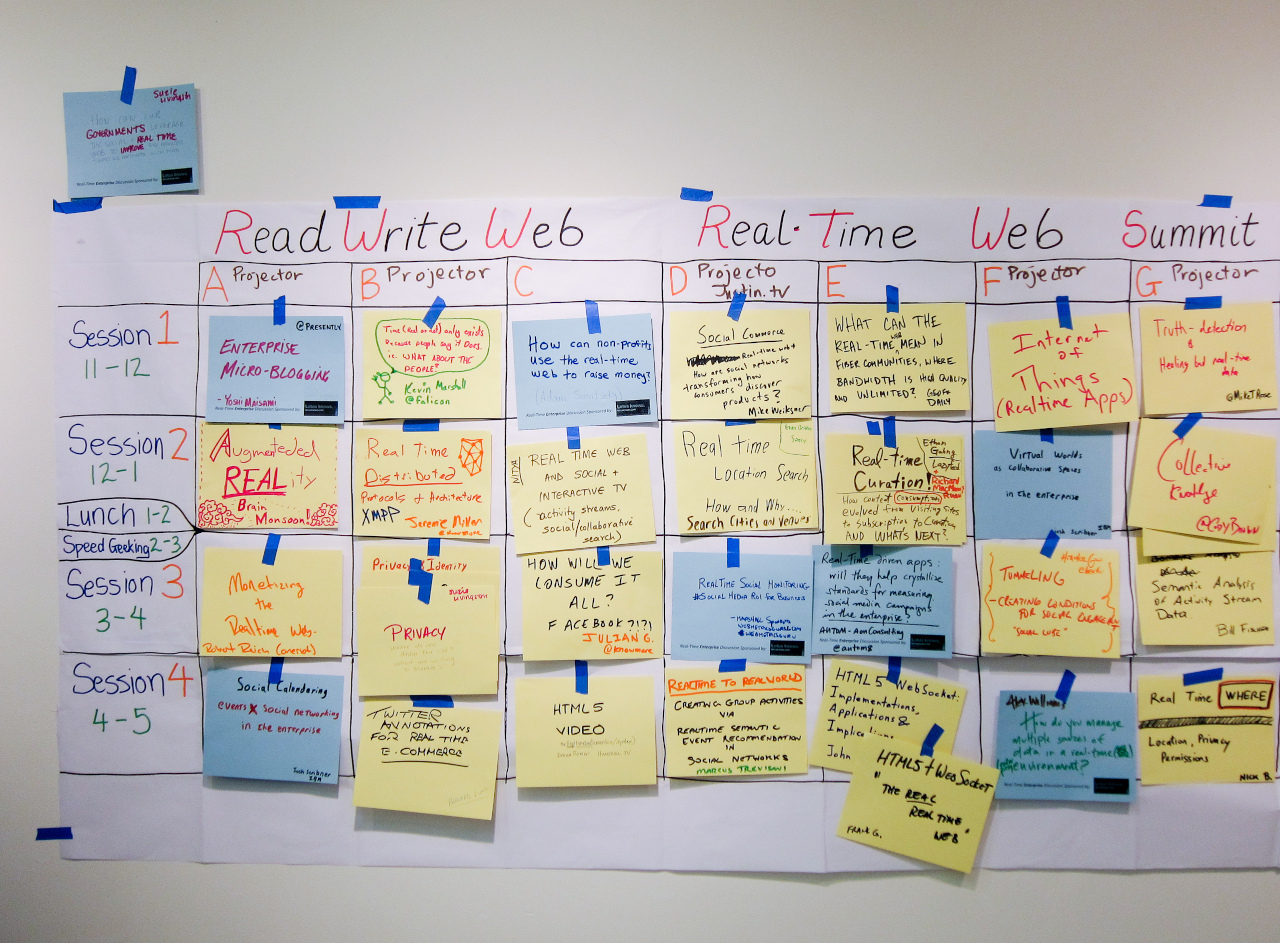 Suzie
HOW CAN THE
GOVERNMENTS LEVERAGE
REAL TIME
WEB TO IMPROVE
Real-Time Enterprise Discussion Sponsored by:
Read Write Web Real-Time Web Summit
A Projector
B Projector
C
D Projecto
Justin.tv
E
F Projector
G Projector
Session 1
11-12
@PRESENTLY
ENTERPRISE
MICRO-BLOGGING
- YOSHI MAISAMI
Real-Time Enterprise Discussion Sponsored by:
Time (real or not) only exists
because people say it Does.
i.e. WHAT ABOUT THE
PEOPLE?
Kevin Marshall
@falicon
How can non-profits
use the real-time
web to raise money?
Real-Time Enterprise Discussion Sponsored by:
Social Commerce
Real-time web +
How are social networks
transforming how
consumers discover
products?
Mike Weiksner
WHAT CAN THE
REAL-TIME WEB MEAN IN
FIBER COMMUNITIES, WHERE
BANDWIDTH IS HIGH QUALITY
AND UNLIMITED?
GEOFF
DAILY
Internet
of
Things
(Realtime Apps)
Truth-detection
&
Healing but real-time
data
@MikeTRose
Session 2
12-1
Augmenteded
REALity
Brain
Monsoon!
Real Time
Distributed
Protocols & Architecture
XMPP
Jeremie Miller
REAL TIME WEB
AND SOCIAL +
INTERACTIVE TV
(activity streams,
social/collaborative
search)
Real time
Location Search
How and Why....
Search Cities and Venues
Real-Time
Curation!
Ethan
Richard
How content consumption
evolved from visiting sites
to subscription to Curation,
AND WHAT'S NEXT?
Virtual Worlds
as collaborative spaces
in the enterprise
Josh Scribner IBM
Collective
Knowledge
Lunch 1-2
Speed Geeking 2-3
Session 3
3-4
Monetizing
the
Realtime Web-
Robert Reich (oneriot)
Privacy & Identity
suzie
livingston
PRIVACY
HOW WILL WE
CONSUME IT
ALL?
FACEBOOK?!?!
JULIAN G.
@knowmore
REALTIME SOCIAL MONITORING
#SOCIAL MEDIA ROI FOR BUSINESS
- MARSHALL SPONDER
WEBMETRICSGURU.COM
@WEBMETRICSGURU
Real-Time driven apps:
will they help crystallize
standards for measuring
social media campaigns
in the enterprise?
AUTOM - Aon Consulting
@autom8
Real-Time Enterprise Discussion Sponsored by:
TUNNELING
- CREATING CONDITIONS
FOR SOCIAL ENGAGEMENT
"SOCIAL LITE"
Semantic Analysis
of Activity Stream
Data
Bill
Session 4
4-5
Social Calendaring
events X social networking
in the enterprise
Josh Scribner
IBM
TWITTER
ANNOTATIONS
FOR REAL TIME
E-COMMERCE
HTML5
VIDEO
REALTIME TO REALWORLD
CREATING GROUP ACTIVITIES
VIA
REALTIME SEMANTIC
EVENT RECOMMENDATION
IN
SOCIAL NETWORKS
MARCUS TREVISANI
HTML5 WebSocket:
Implementations,
Applications &
John
HTML5 + WebSocket
"THE REAL
REAL TIME
WEB"
FRANK G.
Alex Williams
How do you manage
multiple sources of
data in a real-time
environment?
Real Time WHERE
Location, Privacy
Permissions
NICK B.